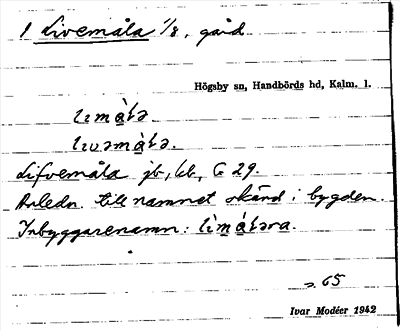 1 Livemåla 1/8, gård
Högsby sn, Handbörds hd, Kalm. l.
Lifvemåla jb, kb, G 29.
Anledn. till namnet okänd i bygden.
Inbyggarenamn:
s. 65
Ivar Modéer 1942